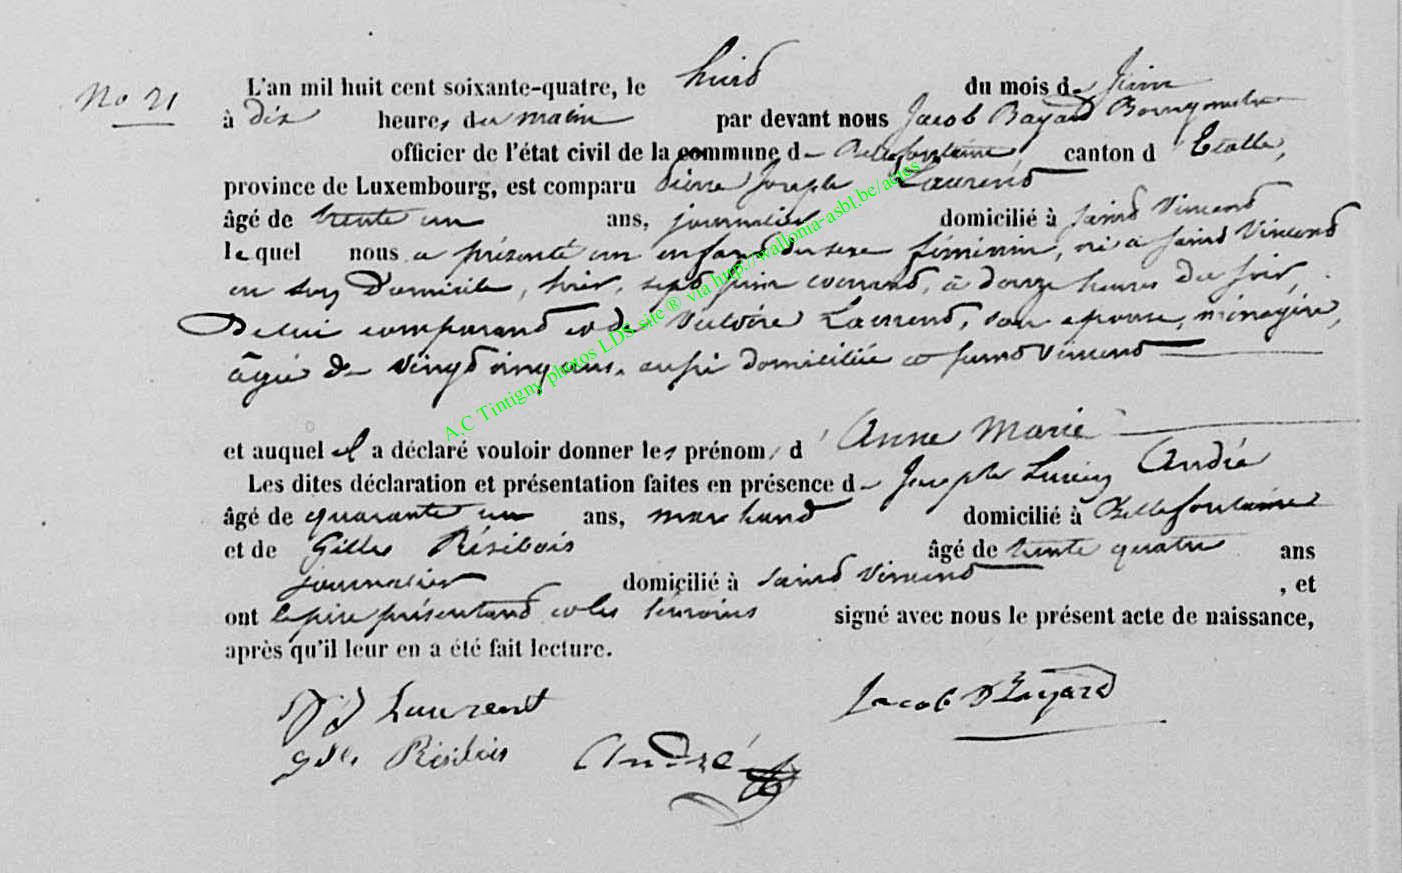 No 21
L'an mil huit cent soixante-quatre, le huit du mois de Juin
à dix heures du matin par devant nous Jacob Bayard Bourgmestre
officier de l'état civil de la commune de Bellefontaine, canton d'Etalle,
province de Luxembourg, est comparu Pierre Joseph Laurent
âgé de trente un ans, journalier domicilié à Saint Vincent
lequel nous a présenté un enfant du sexe féminin, né à Saint Vincent
en son Domicile, hier, sept juin courant, à douze heures du soir,
De lui comparant et de Victoire Laurent, son epouse, ménagère,
âgée de vingt cinq ans, aussi domiciliée à Saint Vincent
et auquel il a déclaré vouloir donner les prénoms d'Anne Marie
Les dites déclaration et présentation faites en présence de Joseph Lucien André
âgé de quarante un ans, marchand domicilié à Bellefontaine
et de Gilles Résibois âgé de trente quatre ans
journalier domicilié à Saint Vincent, et
ont le père présentant et les témoins signé avec nous le présent acte de naissance,
après qu'il leur en a été fait lecture.
PJ Laurent Jacob Bayard
Résibois André
A.C Tintigny photos LDS site ® via http://wallonia-asbl.be/actes